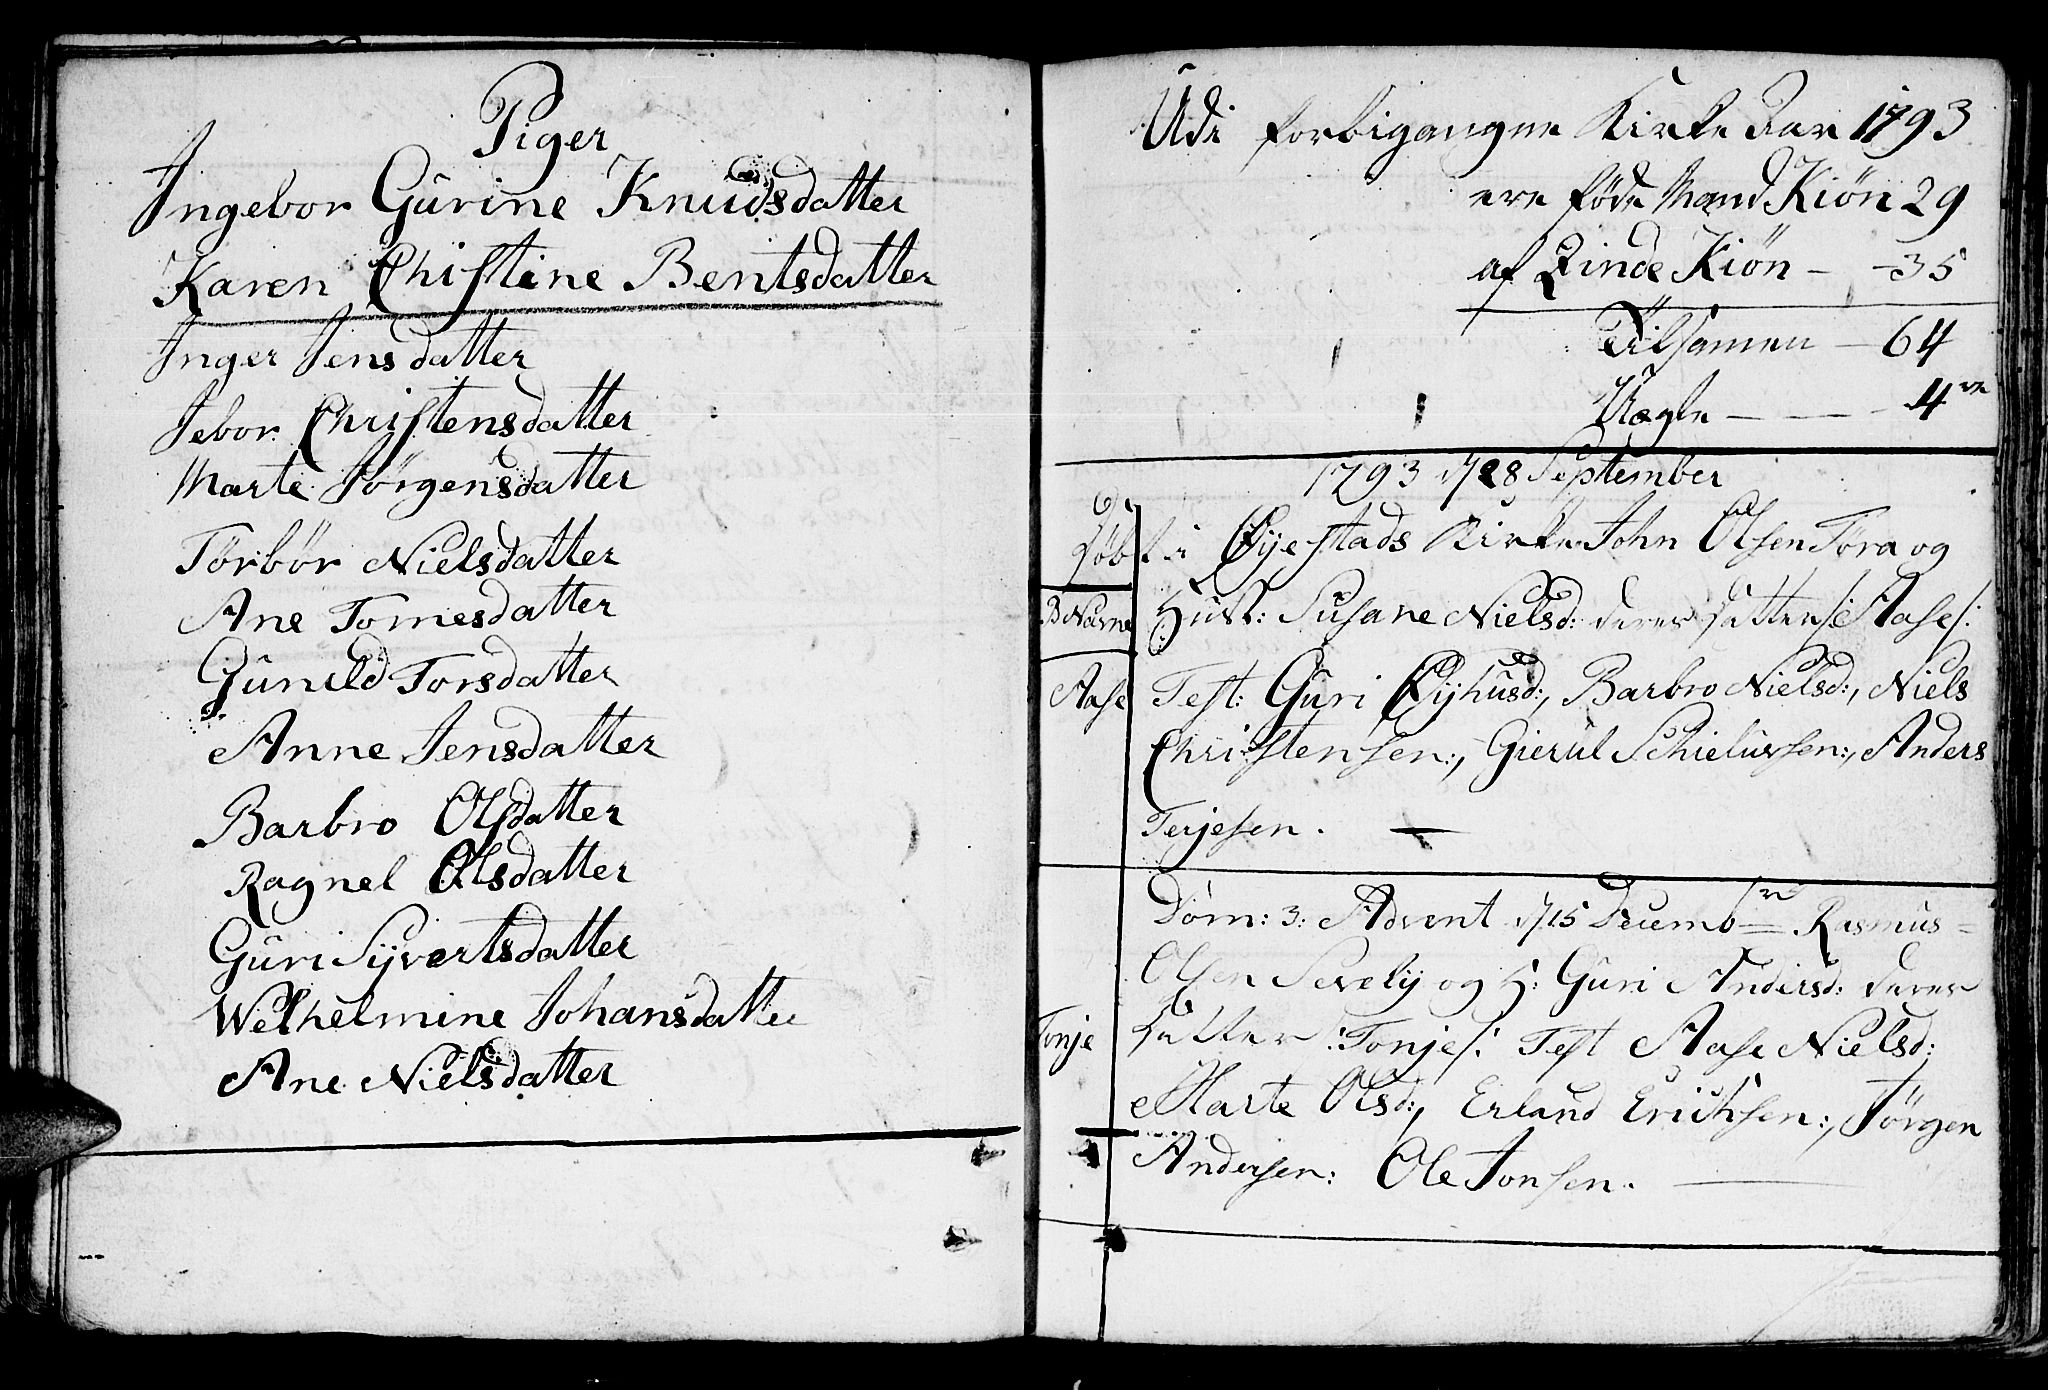 Piger
Ingebor Gurine Knudsdatter
Karen Chistine Bentsdatter
Inger Jensdatter
Jebor Christensdatter
Marte Jörgensdatter
Törbör Nielsdatter
Ane Tomesdatter
Gunild Torsdatter
Anne Jensdatter
Barbro Olsdatter
Ragnel Olsdatter
Guri Sÿvertsdatter
Welhelmine Johansdatter
Ane Nielsdatter
Udi forbigangne Kirke Aar 1793
ere føde Mand Kiön 29
af Qinde Kiön - 35
Tilsamen - 64
Uægte - - - 4re
1793 d 28 September
Døbt i Öÿestads Kirke John Olsen Tora og
B Navne Hust: Susane Nielsd: deres Datter /: Aase /:
Aase Test: Guri Öÿhusd:, Barbro Nielsd:, Niels
Christensen:, Gierul Schielursen:, Anders
Terjesen.
Dom: 3: Advent d 15 Decembr Rasmus
Olsen Sevelÿ og H: Guri Andersd: deres
Tonje Datter /: Tonje /: Test Aase Nielsd:
Marte Olsd:, Erland Erichsen:, Jörgen
Andersen: Ole Jonsen.